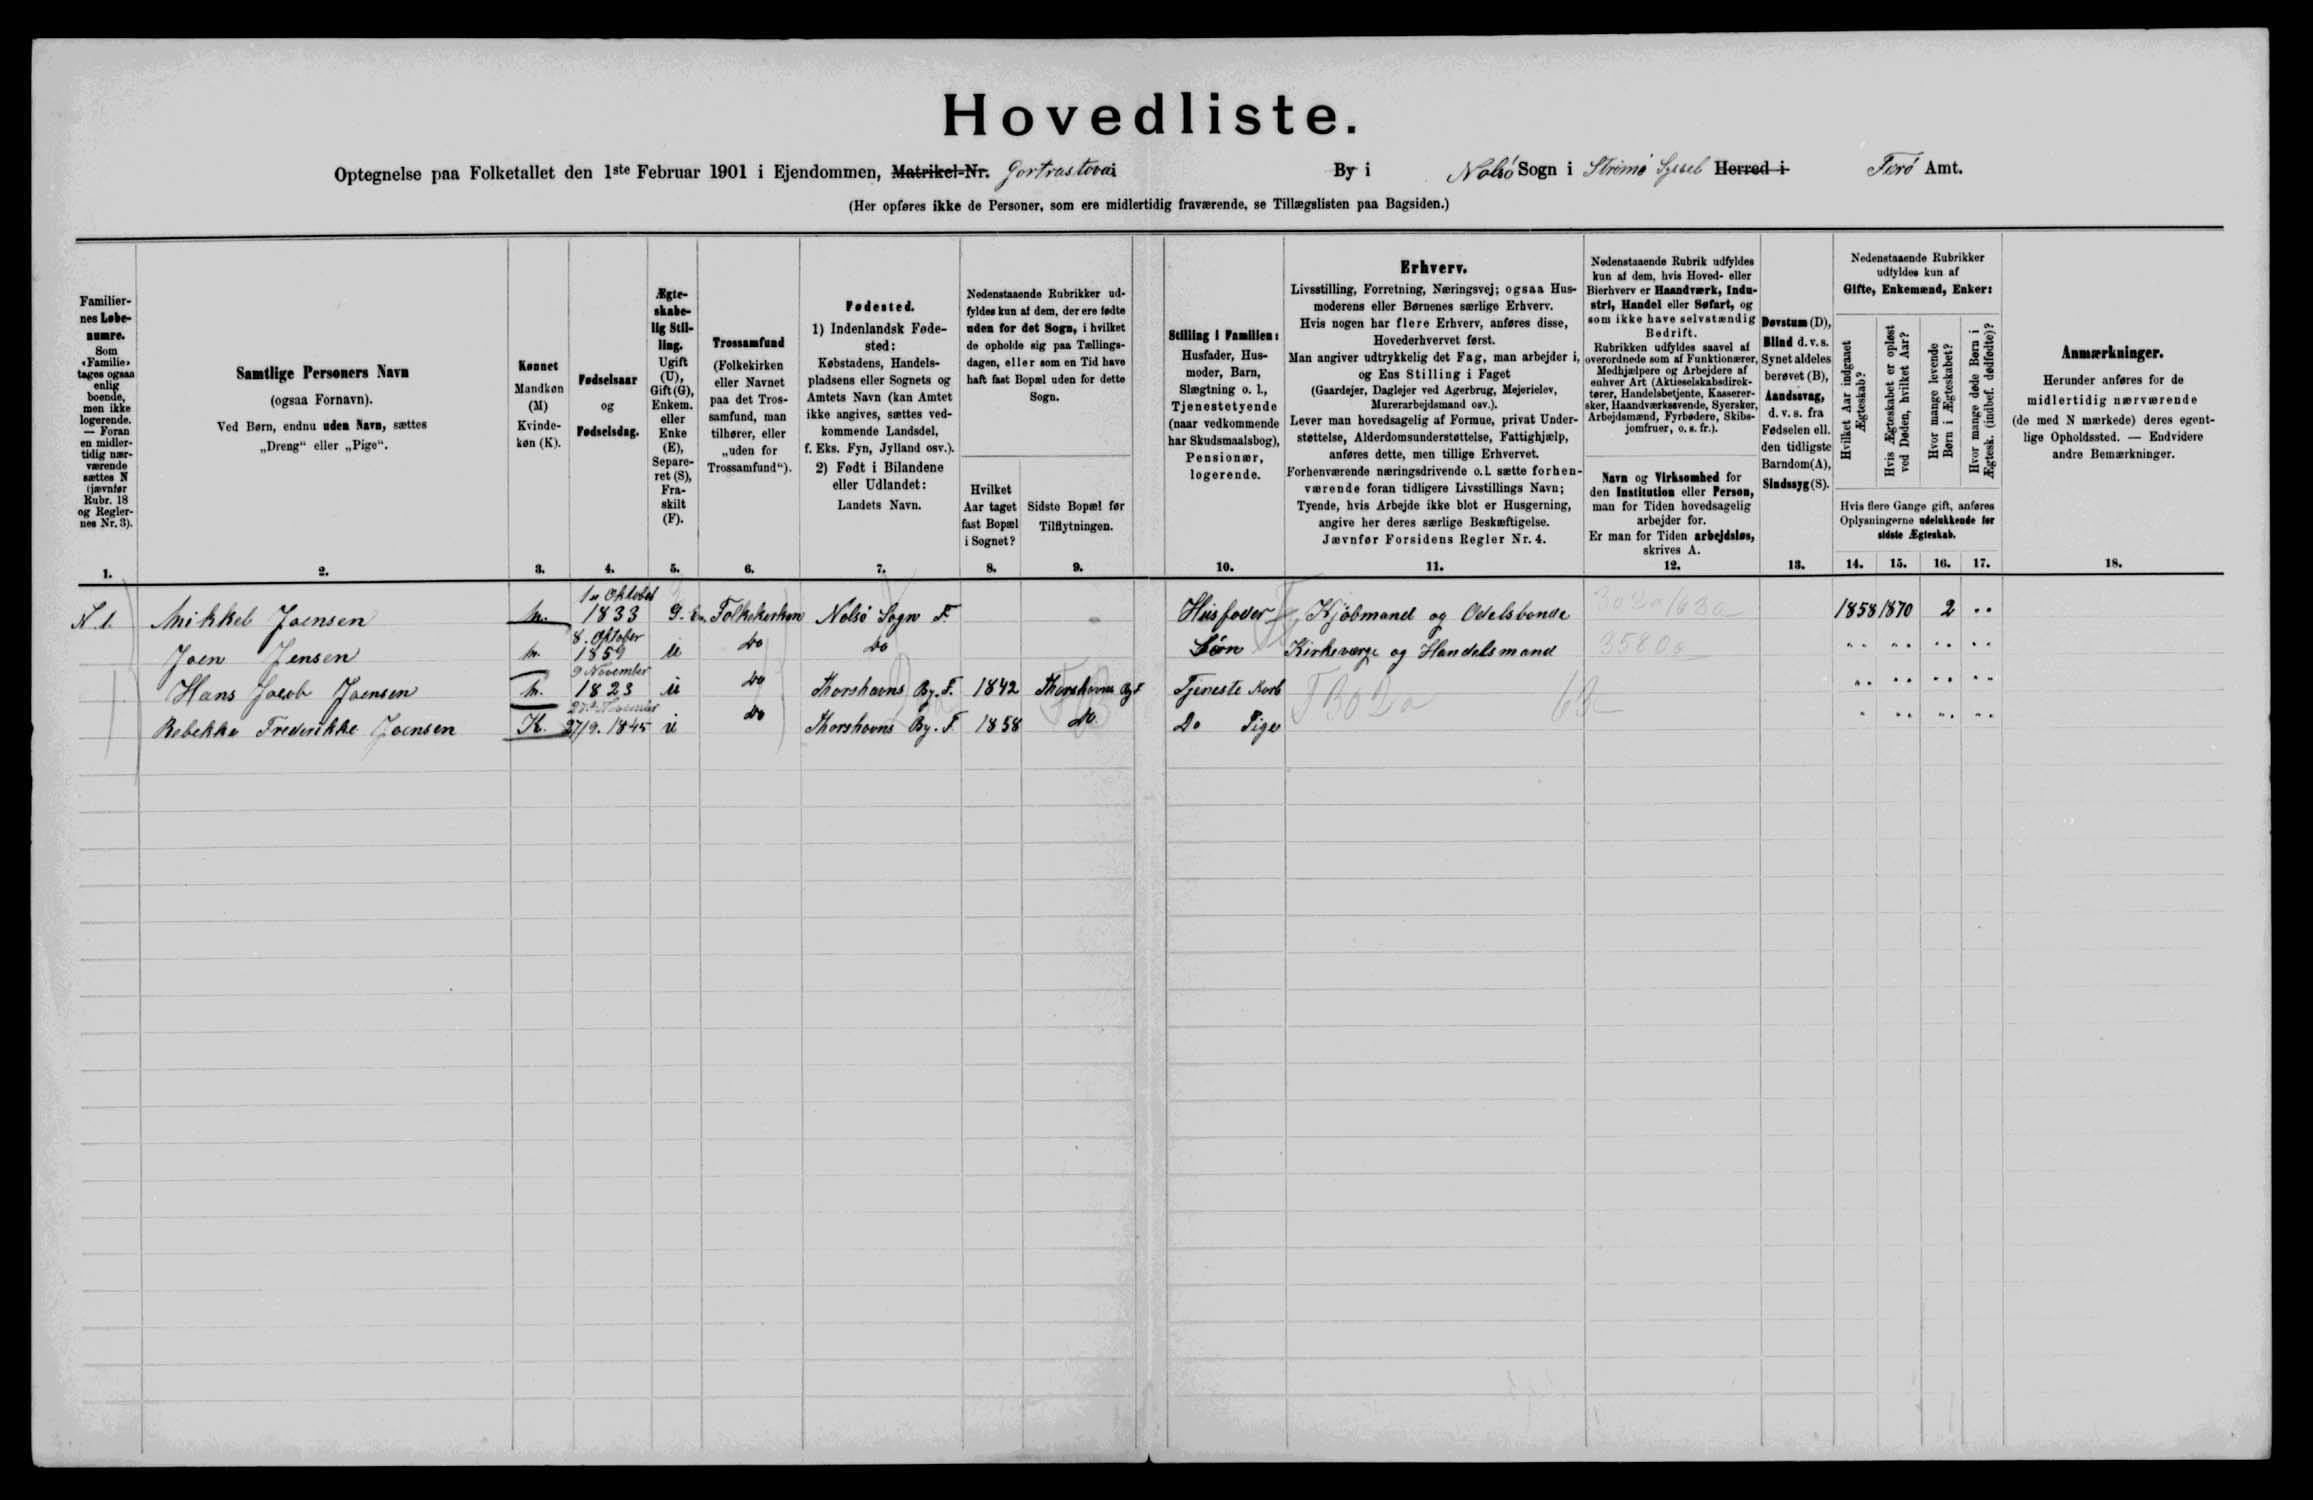 Hovedliste.
Optegnelse paa Folketallet den 1ste Februar 1901 i Ejendommen, Matrikel-Nr. Gortrastovai By i Nolsø Sogn i Strømø Syssel Herred i Færø Amt.
(Her opføres ikke de Personer, som ere midlertidig fraværende, se Tillægslisten paa Bagsiden.)
Familier-
nes Løbe-
numre.
Som
«Familie»
tages ogsaa
enlig
boende,
men ikke
logerende.
— Foran
en midler-
tidig nær-
værende
sættes N
(jævnfør
Rubr. 18
og Regler-
nes Nr. 3).
1.
Samtlige Personers Navn
(ogsaa Fornavn).
Ved Børn, endnu uden Navn, sættes
„Dreng“ eller „Pige“.
2.
Kønnet
Mandkøn
(M)
Kvinde-
køn (K).
3.
Fødselsaar
og
Fødselsdag.
4.
Ægte-
skabe-
lig Stil-
ling.
Ugift
(U),
Gift (G),
Enkem.
eller
Enke
(E),
Separe-
ret (S),
Fra-
skilt
(F).
5.
Trossamfund
(Folkekirken
eller Navnet
paa det Tros-
samfund, man
tilhører, eller
„uden for
Trossamfund“).
6.
Fødested.
1) Indenlandsk Føde-
sted:
Købstadens, Handels-
pladsens eller Sognets og
Amtets Navn (kan Amtet
ikke angives, sættes ved-
kommende Landsdel,
f. Eks. Fyn, Jylland osv.).
2) Født i Bilandene
eller Udlandet:
Landets Navn.
7.
Nedenstaaende Rubrikker ud-
fyldes kun af dem, der ere fødte
uden for det Sogn, i hvilket
de opholde sig paa Tællings-
dagen, eller som en Tid have
haft fast Bopæl uden for dette
Sogn.
Hvilket
Aar taget
fast Bopæl
i Sognet?
8.
Sidste Bopæl før
Tilflytningen.
9.
Stilling i Familien:
Husfader, Hus-
moder, Barn,
Slægtning o. l.,
Tjenestetyende
(naar vedkommende
har Skudsmaalsbog),
Pensionær,
logerende.
10.
Erhverv.
Livsstilling, Forretning, Næringsvej; ogsaa Hus-
moderens eller Børnenes særlige Erhverv.
Hvis nogen har flere Erhverv, anføres disse,
Hovederhvervet først.
Man angiver udtrykkelig det Fag, man arbejder i,
og Ens Stilling i Faget
(Gaardejer, Daglejer ved Agerbrug, Mejerielev,
Murerarbejdsmand osv.).
Lever man hovedsagelig af Formue, privat Under-
støttelse, Alderdomsunderstøttelse, Fattighjælp,
anføres dette, men tillige Erhvervet.
Forhenværende næringsdrivende o. l. sætte forhen-
værende foran tidligere Livsstillings Navn;
Tyende, hvis Arbejde ikke blot er Husgerning,
angive her deres særlige Beskæftigelse.
Jævnfør Forsidens Regler Nr. 4.
11.
Nedenstaaende Rubrik udfyldes
kun af dem, hvis Hoved- eller
Bierhverv er Haandværk, Indu-
stri, Handel eller Søfart, og
som ikke have selvstændig
Bedrift.
Rubrikken udfyldes saavel af
overordnede som af Funktionærer,
Medhjælpere og Arbejdere af
enhver Art (Aktieselskabsdirek-
tører, Handelsbetjente, Kasserer-
sker, Haandværkssvende, Syersker,
Arbejdsmænd, Fyrbødere, Skibs-
jomfruer, o. s. fr.).
Navn og Virksomhed for
den Institution eller Person,
man for Tiden hovedsagelig
arbejder for.
Er man for Tiden arbejdsløs,
skrives A.
12.
Døvstum (D),
Blind d. v. s.
Synet aldeles
berøvet (B),
Aandssvag,
d. v. s. fra
Fødselen ell.
den tidligste
Barndom (A),
Sindssyg (S).
13.
Nedenstaaende Rubrikker
udfyldes kun af
Gifte, Enkemænd, Enker:
Hvilket Aar indgaaet
Ægteskab?
Hvis Ægteskabet er opløst
ved Døden, hvilket Aar?
Hvor mange levende
Børn i Ægteskabet?
Hvor mange døde Børn i
Ægtesk. (indbef. dødfødte)?
Hvis flere Gange gift, anføres
Oplysningerne udelukkende for
sidste Ægteskab.
14. 15. 16. 17.
Anmærkninger.
Herunder anføres for de
midlertidig nærværende
(de med N mærkede) deres egent-
lige Opholdssted. — Endvidere
andre Bemærkninger.
18.
N. 1. Mikkel Joensen M. 1ste Oktober 1833 G. En. Folkekirken Nolsø Sogn F. Husfader Kjøbmand og Odelsbonde 1858 1870 2 ..
Joen Jensen M. 8. Oktober 1859 U Do Do Søn Kirkeværge og Handelsmand 35800
Hans Jacob Joensen M. 9 November 1823 U Do Thorshavns By. F. 1842 Thorshavns By F Tjeneste Karl
Rebekka Frederikke Joensen K. 27/9. 1845 U Do Thorshavns By. F. 1858 Do. Do Pige